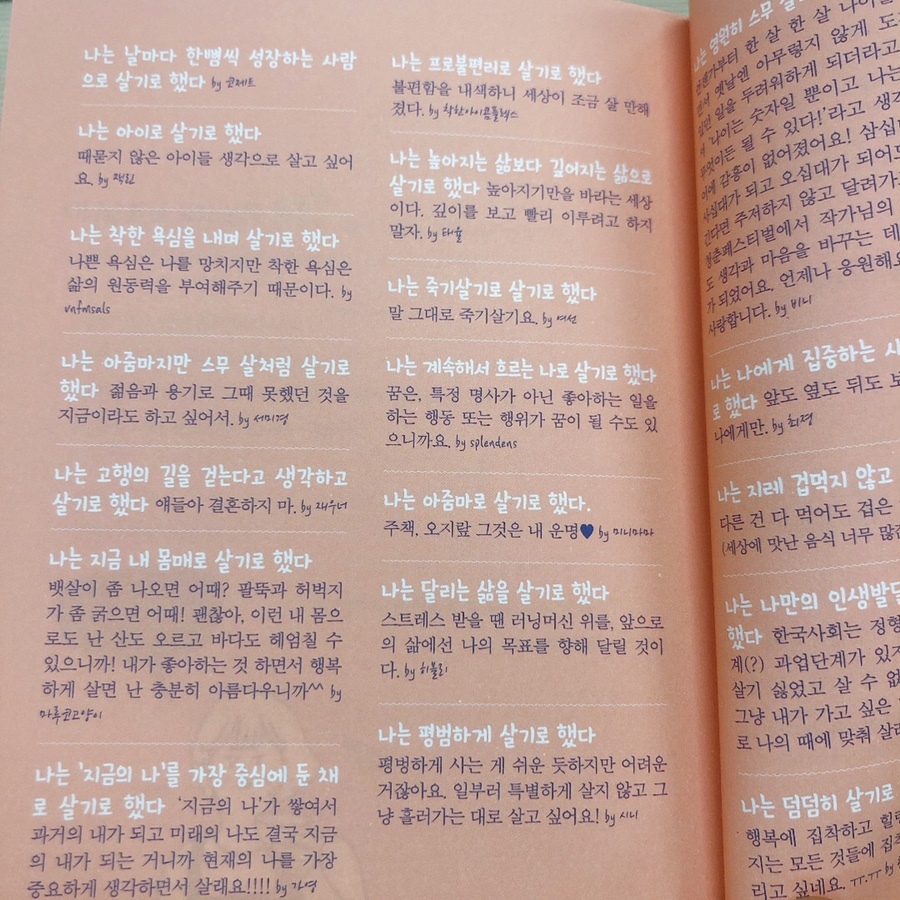 나는 날마다 한뼘씩 성장하는 사람
으로 살기로 했다 by 코제트
나는 아이로 살기로 했다
때묻지 않은 아이들 생각으로 살고 싶어
요. by 잭린
나는 착한 욕심을 내며 살기로 했다
나쁜 욕심은 나를 망치지만 착한 욕심은
삶의 원동력을 부여해주기 때문이다. by
vnfmsals
나는 아줌마지만 스무 살처럼 살기로
했다 젊음과 용기로 그때 못했던 것을
지금이라도 하고 싶어서. by 세미경
나는 고행의 길을 걷는다고 생각하고
살기로 했다 얘들아 결혼하지 마. by 재우너
나는 지금 내 몸매로 살기로 했다
뱃살이 좀 나오면 어때? 팔뚝과 허벅지
가 좀 굵으면 어때! 괜찮아, 이런 내 몸으
로도 난 산도 오르고 바다도 헤엄칠 수
있으니까! 내가 좋아하는 것 하면서 행복
하게 살면 난 충분히 아름다우니까^^ by
마룩코고양이
나는 '지금의 나'를 가장 중심에 둔 채
로 살기로 했다 '지금의 나'가 쌓여서
과거의 내가 되고 미래의 나도 결국 지금
의 내가 되는 거니까 현재의 나를 가장
중요하게 생각하면서 살래요!!!! by 가영
나는 프로불편러로 살기로 했다
불편함을 내색하니 세상이 조금 살 만해
졌다. by 착한아이콤플렉스
나는 높아지는 삶보다 깊어지는 삶으로
살기로 했다 높아지기만을 바라는 세상
이다. 깊이를 보고 빨리 이루려고 하지
말자. by 태율
나는 죽기살기로 살기로 했다
말 그대로 죽기살기요. by 여선
나는 계속해서 흐르는 나로 살기로 했다
꿈은, 특정 명사가 아닌 좋아하는 일을
하는 행동 또는 행위가 꿈이 될 수도 있
으니까요. by splendens
나는 아줌마로 살기로 했다.
주책, 오지랖 그것은 내 운명♥ by 미니마마
나는 달리는 삶을 살기로 했다
스트레스 받을 땐 러닝머신 위를, 앞으로
의 삶에선 나의 목표를 향해 달릴 것이
다. by 히블리
나는 평범하게 살기로 했다
평범하게 사는 게 쉬운 듯하지만 어려운
거잖아요. 일부러 특별하게 살지 않고 그
냥 흘러가는 대로 살고 싶어요! by 시니
나는 영원히 스무 살
언젠가부터 한 살 한 살 나이를
면서 옛날엔 아무렇지 않게 도
일을 두려워하게 되더라고
'나이는 숫자일 뿐이고 나는
무엇이든 될 수 있다!'라고 생각
이에 감흥이 없어졌어요! 삼십
사십대가 되고 오십대가 되어도
긴다면 주저하지 않고 달려가
청춘페스티벌에서 작가님의
도 생각과 마음을 바꾸는 데
가 되었어요. 언제나 응원해요
사랑합니다. by 비니
나는 나에게 집중하는 사
로 했다 앞도 옆도 뒤도 보
나에게만. by 최경
나는 지레 겁먹지 않고
다른 건 다 먹어도 겁은
(세상에 맛난 음식 너무 많
나는 나만의 인생발달
했다 한국사회는 정형
계(?) 과업단계가 있지
살기 싫었고 살 수 없
그냥 내가 가고 싶은
로 나의 때에 맞춰 살
나는 덤덤히 살기로
행복에 집착하고 힐링
지는 모든 것들에 집착
리고 싶네요. ㅜㅜ.ㅜㅜ by